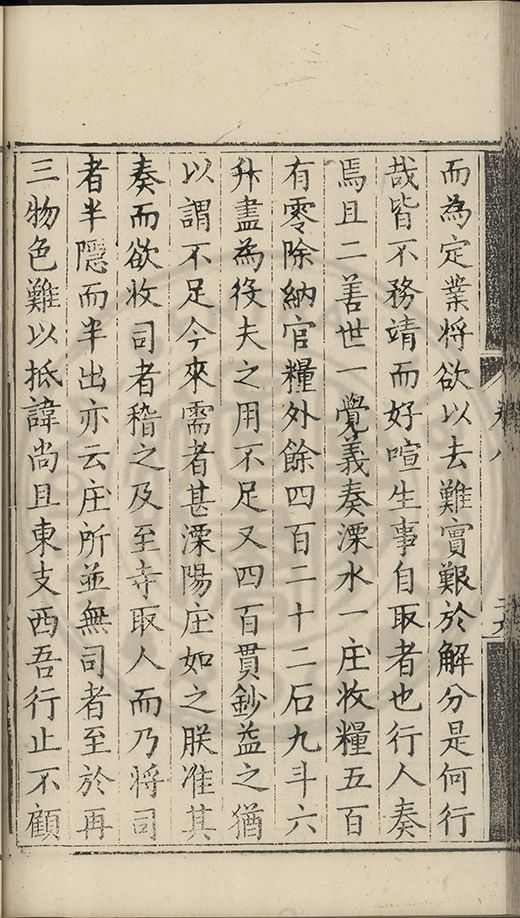 而為定業将欲以去難實艱於解分是何行
哉皆不務靖而好喧生事自取者也行人奏
焉且二善世一覺義奏溧水一庄收糧五百
有零除納官糧外餘四百二十二石九斗六
升盡為役夫之用不足又四百貫鈔益之猶
以謂不足今來需者甚溧陽庄如之朕准其
奏而欲收司者稽之及至寺取人而乃將司
者半隱而半出亦云庄所並無司者至於再
三物色難以抵諱尚且東支西吾行止不顧